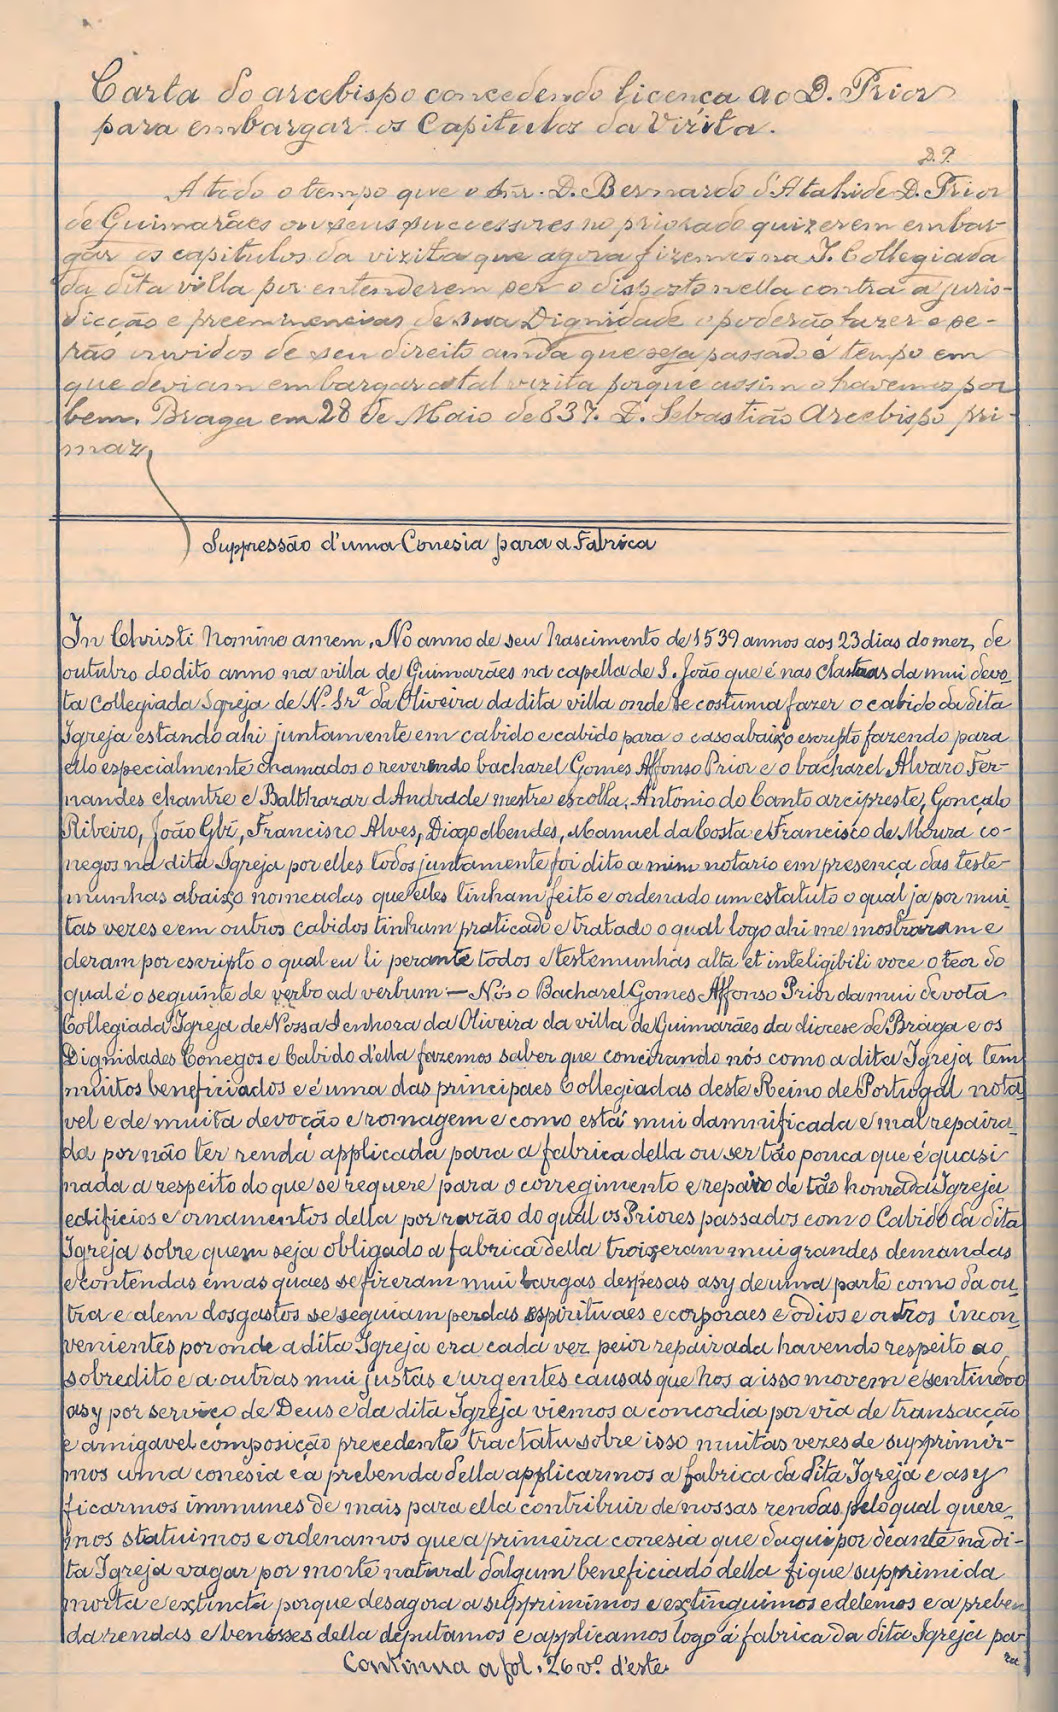 Carta do arcebispo concedendo licença ao D. Prior
para embargar os Capitulos da Vizita.
D. P.
A todo o tempo que o Snr. D. Bernardo d'Atahide D. Prior
de Guimarães ou seus successores no priorado quizerem embar-
gar os capitulos da vizita que agora fizemos na I. Collegiada
da dita villa por entenderem ser o disposto nella contra a juris-
dicção e preeminencias de sua Dignidade o poderão fazer e se-
rão ouvidos de seu direito ainda que seja passado o tempo em
que deviam embargar a tal vizita porque assim o havemos por
bem. Braga em 28 de Maio de 637. D. Sebastião Arcebispo pri-
maz
Suppressão d'uma Conesia para a Fabrica
In Christi Nomine amem. No anno de seu Nascimento de 1539 annos aos 23 dias do mez de
outubro do dito anno na villa de Guimarães na capella de S. João que é nas clastras da mui devo-
ta Collegiada Igreja de N. Srª da Oliveira da dita villa onde se costuma fazer o cabido da dita
Igreja estando ahi juntamente em cabido e cabido para o caso abaixo escripto fazendo para
ello especialmente chamados o reverendo bacharel Gomes Affonso Prior e o bacharel Alvaro Fer-
nandes chantre e Balthazar d'Andrade mestre escolla, Antonio do Canto arcipreste, Gonçalo
Ribeiro, João Glz, Francisco Alves, Diogo Mendes, Manuel da Costa e Francisco de Moura co-
negos na dita Igreja por elles todos juntamente foi dito a mim notario em presença das teste-
munhas abaixo nomeadas que elles tinham feito e ordenado um estatuto o qual ja por mui-
tas vezes e em outros cabidos tinham praticado e tratado o qual logo ahi me mostraram e
deram por escripto o qual eu li perante todos e testemunhas alta et inteligibili voce o teor do
qual é o seguinte de verbo ad verbum — Nós o Bacharel Gomes Affonso Prior da mui devota
Collegiada Igreja de Nossa Senhora da Oliveira da villa de Guimarães da diocese de Braga e os
Dignidades Conegos e Cabido d'ella fazemos saber que concirando nós como a dita Igreja tem
muitos beneficiados e é uma das principaes Collegiadas deste Reino de Portugal nota
vel e de muita devoção e romagem e como está mui damnificada e mal repaira-
da por não ter renda applicada para a fabrica della ou ser tão pouca que é quasi
nada a respeito do que se requere para o corregimento e repairo de tão honrada Igreja
edificios e ornamentos della por razão do qual os Priores passados com o Cabido da dita
Igreja sobre quem seja obligado a fabrica della troixeram mui grandes demandas
e contendas em as quaes se fizeram mui largas despesas asy de uma parte como da ou-
tra e alem dos gastos se seguiam perdas espirituaes e corporaes e odios e outros incon-
venientes por onde a dita Igreja era cada vez peior repairada havendo respeito ao
sobredito e a outras mui justas e urgentes causas que nos a isso movem e sentindo o
asy por serviço de Deus e da dita Igreja viemos a concordia por via de transacção
e amigavel composição precedente tractatu sobre isso muitas vezes de supprimir-
mos uma conesia e a prebenda della applicarmos a fabrica da dita Igreja e asy
ficarmos immunes de mais para ella contribuir de nossas rendas pelo qual quere-
mos statuimos e ordenamos que a primeira conesia que daqui por deante na di-
ta Igreja vagar por morte natural dalgum beneficiado della fique supprimida
morta e extincta porque desagora a supprimimos e extinguimos e delemos e a preben
da rendas e benesses della deputamos e applicamos logo á fabrica da dita Igreja pa-
ra
Continua a fol. 26 vº. d'este